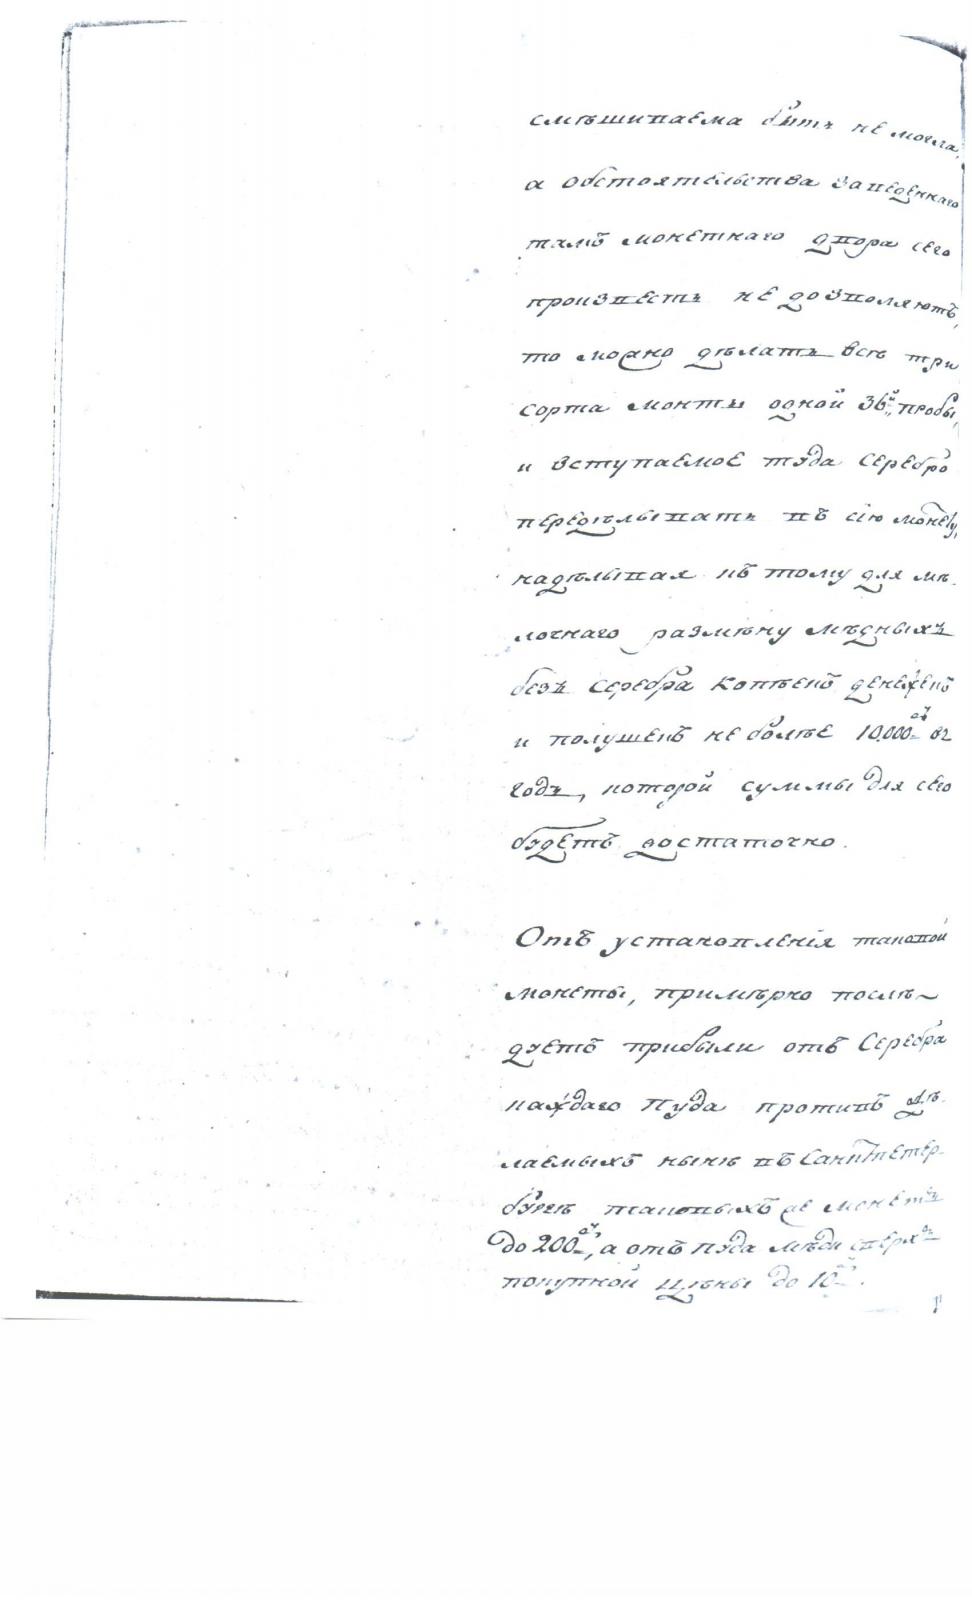 смѣшиваема быть не могла,
а обстоятельства заведеннаго
тамъ монетнаго двора сего
произвесть не дозволяютъ,
то можно дѣлать всѣ три
сорта монты одной 36й, пробы,
и вступаемое туда серебро
передѣлывать въ сію монету,
надѣлывая къ тому для мѣ-
лочнаго размѣну мѣдныхъ
безъ серебра копѣекъ денежекъ
и полушекъ не болѣе 10.000 въ
годъ, которой суммы для сего
будетъ достаточно.
Отъ установленія таковой
монеты, примѣрно послѣ-
дуетъ прибыли отъ Серебра
каждаго пуда противъ дѣ-
лаемыхъ нынѣ въ Санктпетер-
бургѣ таковыхъ же монетъ
до 200, а отъ пуда мѣди сверхъ
покупной цѣны до 10.